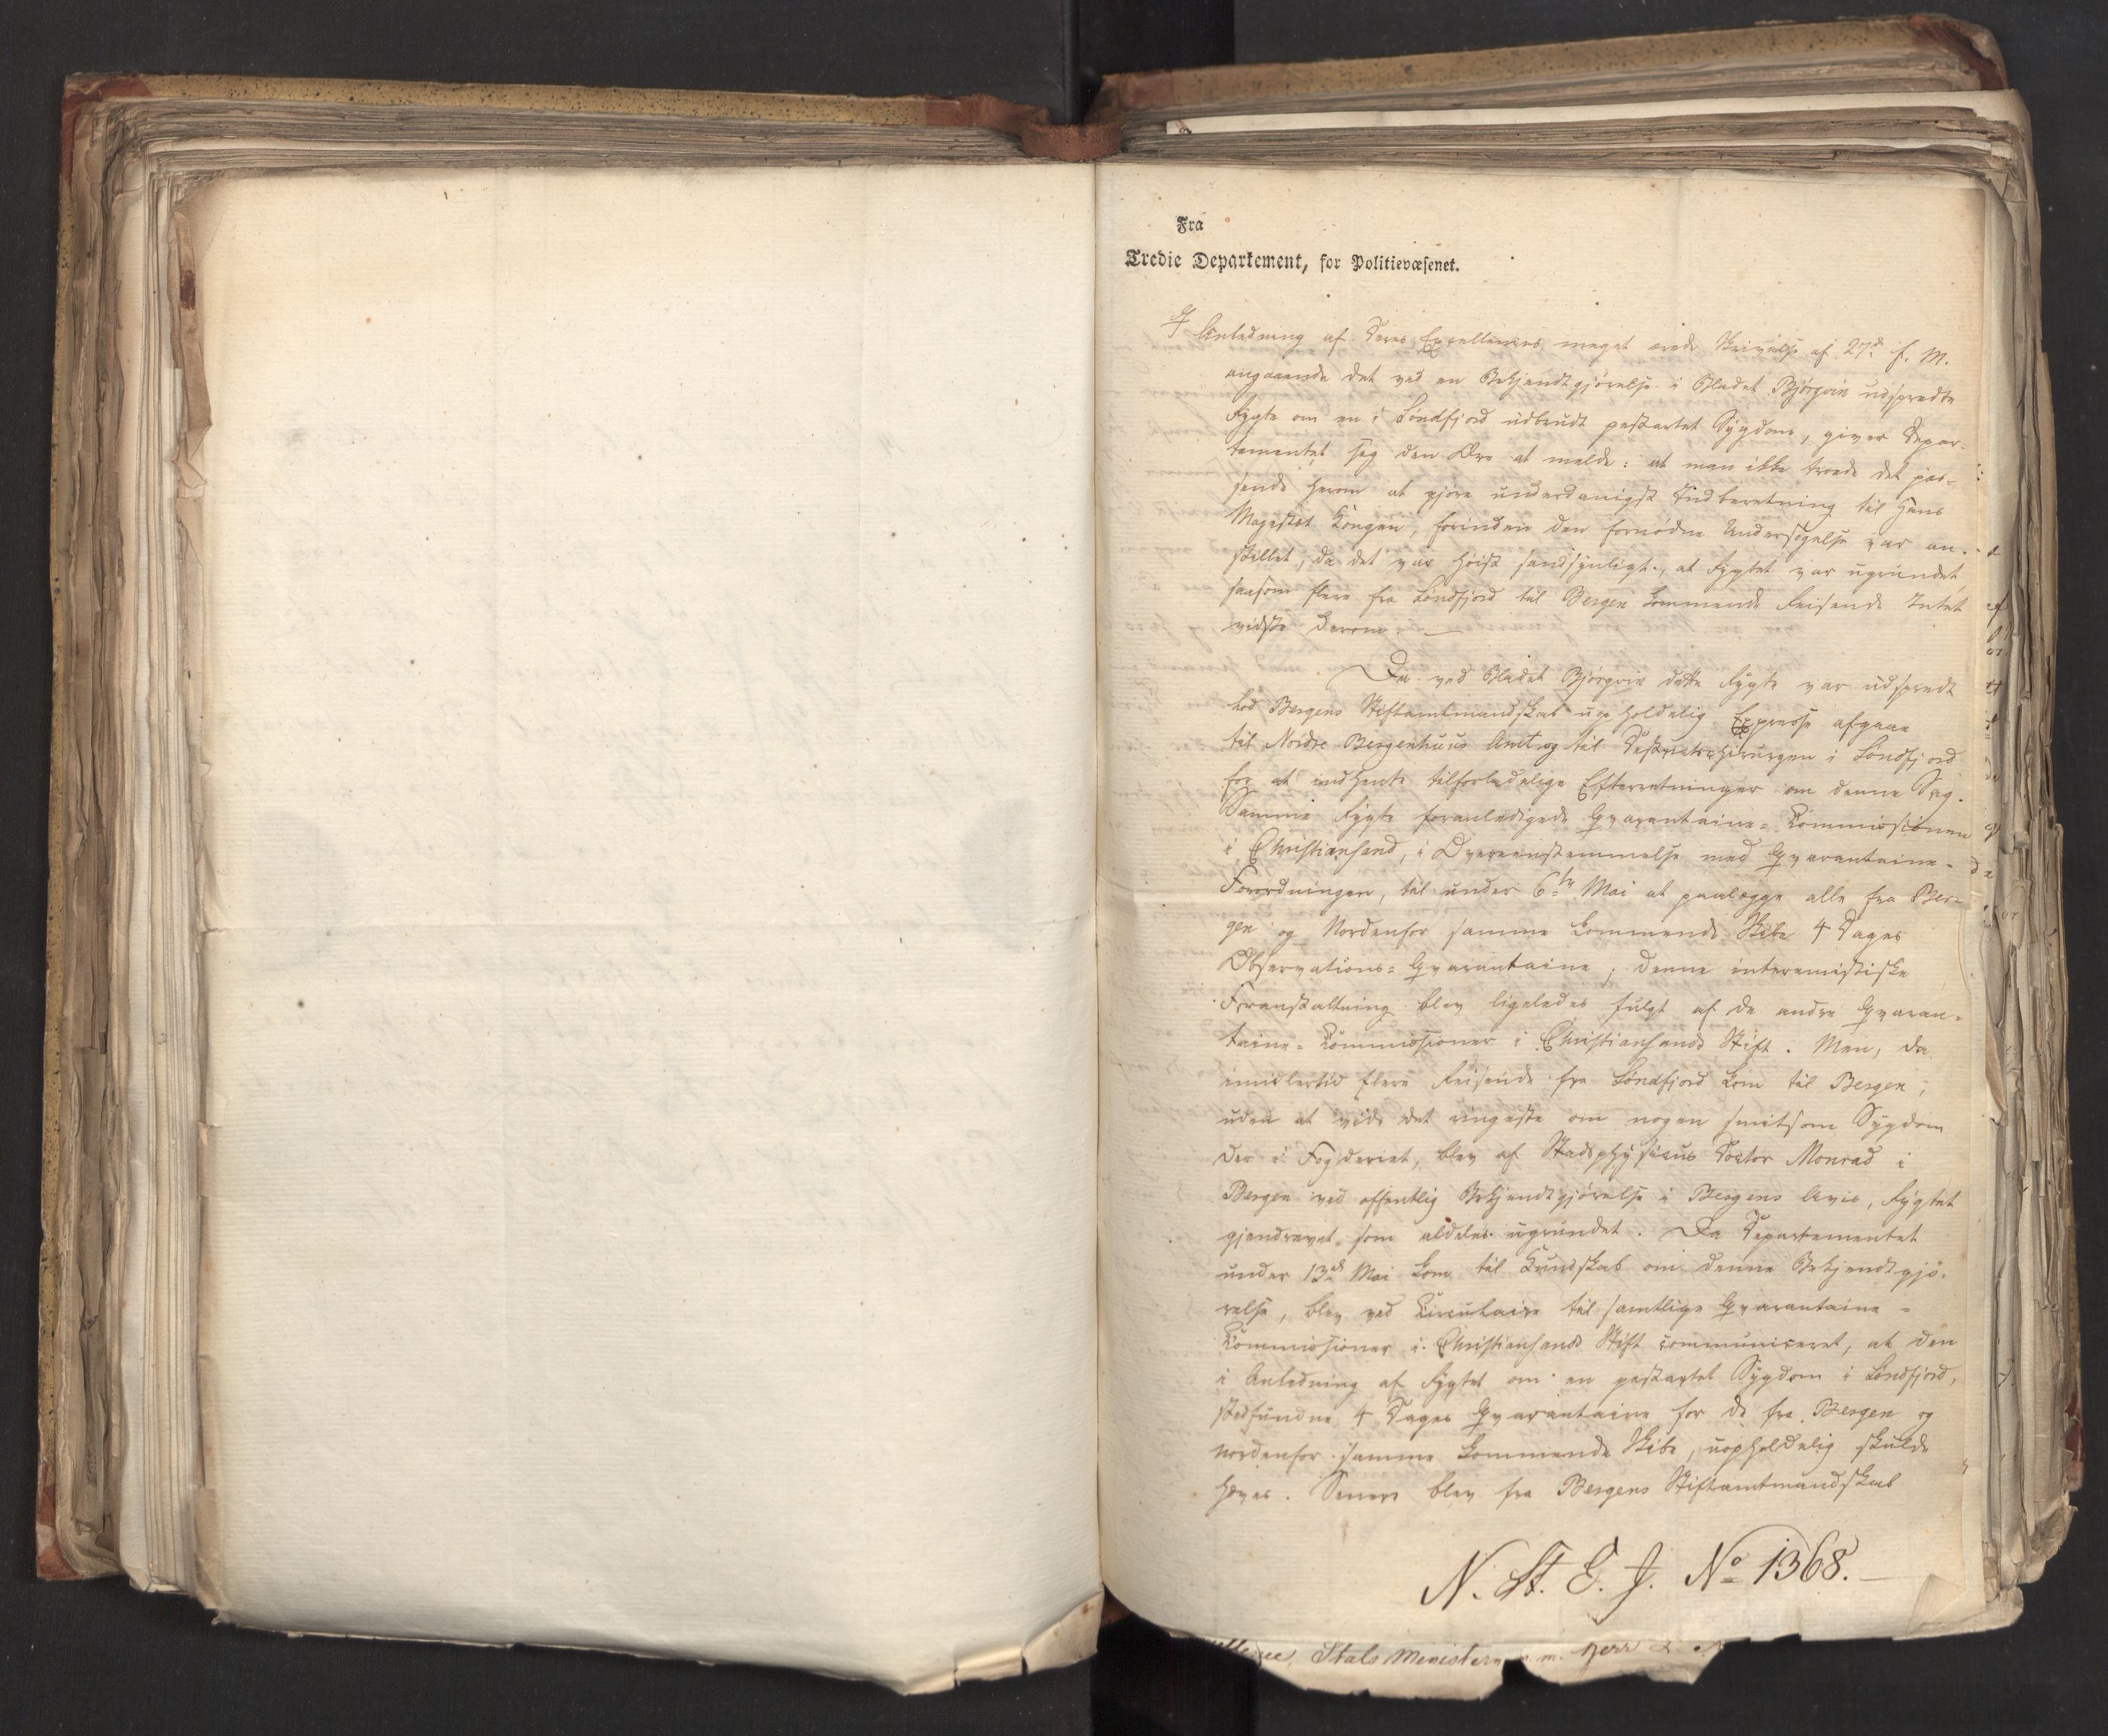 Fra
Tredie Departement, for Politievæsenet.
I Anledning af Deres Excellences meget ærede Skrivelse af 27de f. M.
angaaende det ved en Bekjendtgjørelse i Bladet Bjørgvin udspredte
Rygte om en i Søndfjord udbrudt pestartet Sygdom, giver Depar-
tementet sig den Ære at melde: at man ikke troede det pas-
sende herom at gjøre underdanigst Indberetning til Hans
Majestæt Kongen, forinden den fornødne Undersøgelse var an-
stillet, da det var høist sandsynligt, at Rygtet var ugrundet,
saasom flere fra Søndfjord til Bergen kommende Reisende Intet
vidste derom. —
Da ved Bladet Bjørgvin dette Rygte var udspredt
lod Bergens Stiftamtmandskab uopholdelig Expresse afgaae
til Nordre Bergenhuus Amt og til Districtschirurgen i Søndfjord
for at indhente tilforladelige Efterretninger om denne Sag.
Samme Rygte foranledigede Qvarantaine-Kommissionen
i Christiansand, i Overeensstemmelse med Qvarantaine-
Forordningen, til under 6te Mai at paalægge alle fra Ber-
gen og Nordenfor samme kommende Skibe 4 Dages
Observations-Qvarantaine; denne interimistiske
Foranstaltning blev ligeledes fulgt af de andre Qvaran-
taine-Kommissioner i Christiansands Stift. Men, da
imidlertid flere Reisende fra Søndfjord kom til Bergen,
uden at vide det ringeste om nogen smitsom Sygdom
der i Fogderiet, blev af Stadsphysicus Doctor Monrad i
Bergen ved offentlig Bekjendtgjørelse i Bergens Avis, Rygtet
gjendrevet som aldeles ugrundet. Da Departementet
under 13de Mai kom til Kundskab om denne Bekjendtgjø-
relse, blev ved Circulaire til samtlige Qvarantaine-
Kommissioner i Christiansands Stift communiceret, at den
i Anledning af Rygtet om en pestartet Sygdom i Søndfjord,
stedfundne 4 Dages Qvarantaine for de fra Bergen og
nordenfor samme kommende Skibe, uopholdelig skulde
hæves. Senere blev fra Bergens Stiftamtmandskab
N. St. E. J. No 1368. —
Stats Ministeren m. m. Herr